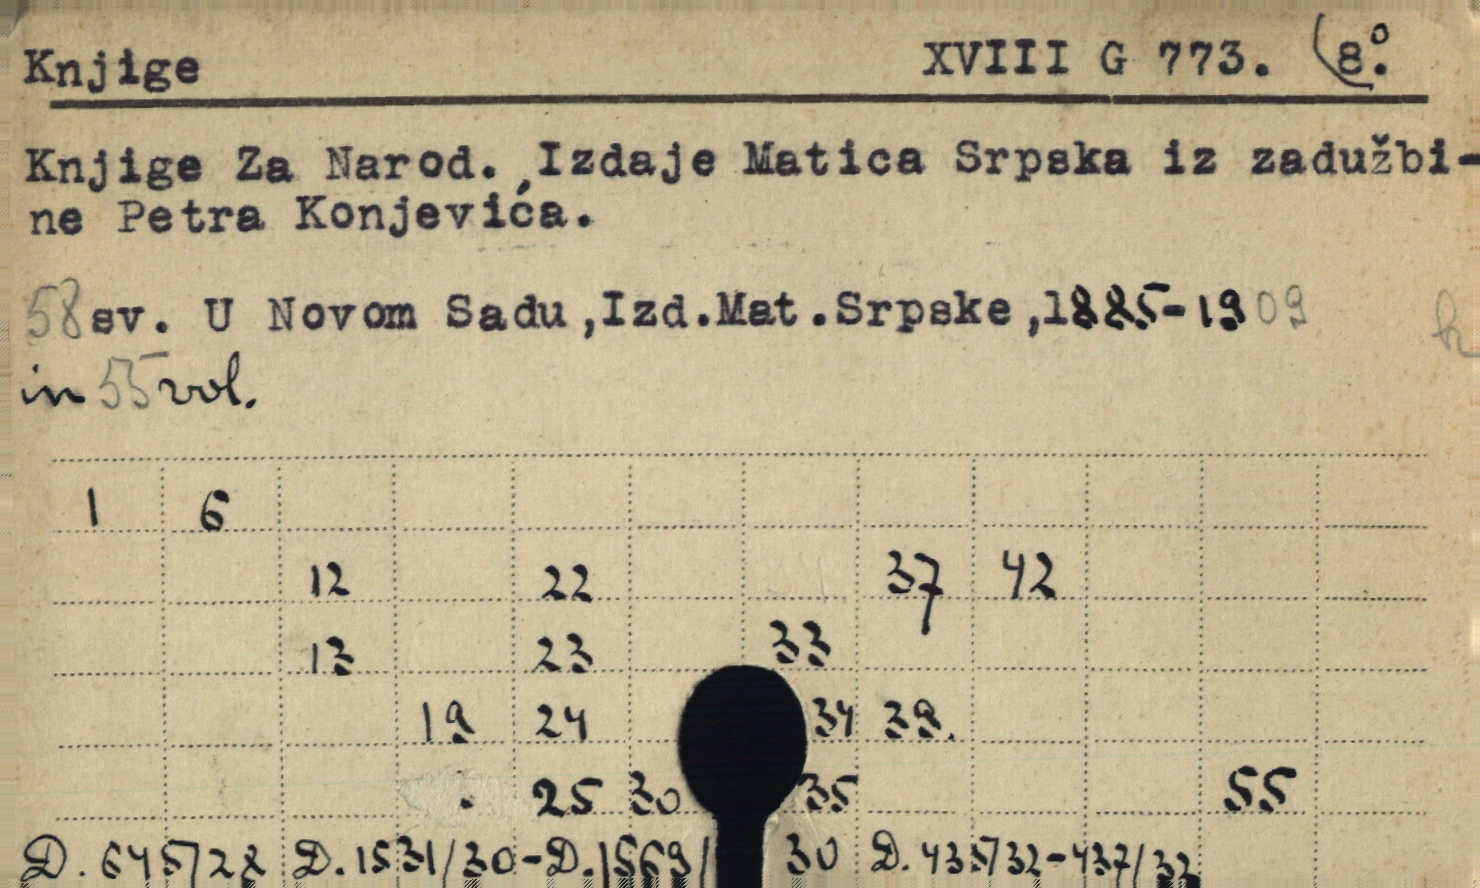 Knjige XVIII G 773. (8°.
Knjige Za Narod. Izdaje Matica Srpska iz zadužbi-
ne Petra Konjevića.
58 sv. U Novom Sadu,Izd.Mat.Srpske,1885-1909
in 55 vol.
1 6
12 22 37 42
13 23 33
19 24 34 39.
25 30 35 55
D. 645/28 D. 1531/30-D. 1569/30 D. 435/32-437/32